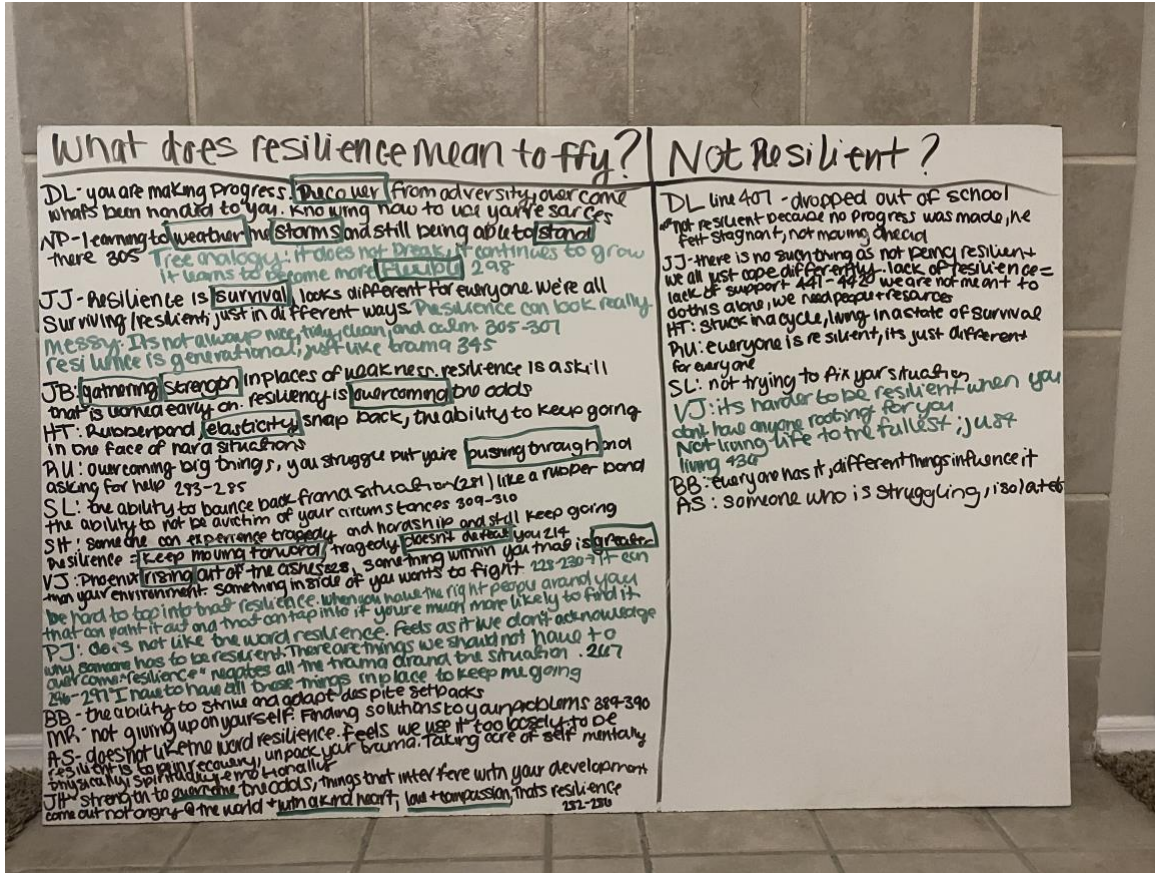 What does resilience mean to ffy?
DL- you are making progress. Recover from adversity, overcome
whats been handed to you. Knowing how to use you're
NP- learning to weather the storms and still being able to stand
there 305 Tree analogy: it does not break, it continues to grow
it learns to become more flexible 298
JJ- Resilience is survival, looks different for everyone we're all
surviving/resilient, just in different ways. Resilience can look really
messy. Its not always nice, tidy, clean, and calm 305-307
resilience is generational, just like trama 345
JB: gathering strength in places of weakness. resilience is a skill
that is worked early on. resiliency is overcoming the odds
HT: Rubberband, elasticity, snap back, the ability to keep going
in the face of hard situations
RU: overcoming big things, you struggle but you're pushing through and
asking for help 283-285
SL: the ability to bounce back from a situation (281) like a rubber band
the ability to not be a victim of your circumstances 309-310
SH: someone can experience tragedy and hardship and still keep going
Resilience = keep moving forward, tragedy doesn't defeat you 214
VJ: Phoenix rising out of the ashes 228, something within you that is greater
than your environment. Something inside of you wants to fight 228-230 → it can
be hard to tap into that resilience. when you have the right people around you
that can point it out and that can tap into it you're much more likely to find it
PJ: does not like the word resilience. Feels as if we don't acknowledge
why someone has to be resilient. There are things we should not have to
overcome "resilience" negates all the trama around the situation. 267
296-297 "I have to have all these things in place to keep me going
BB- the ability to strive and adapt despite setbacks
MR- not giving up on yourself. Finding solutions to your problems 389-390
AS- does not like the word resilience. feels we use it too loosely, to be
resilient is to be in recovery, unpack your trama. Taking care of self mentally
physically, spiritually, emotionally
JH- strength to overcome the odds, things that interfere with your development
come out not angry @ the world + with a kind heart, love + compassion, thats resilience
252-256
Not Resilient?
DL line 407 - dropped out of school
not resilient because no progress was made, he
felt stagnant, not moving ahead
JJ- there is no such thing as not being resilient
we all just cope differently. lack of resilience =
lack of support 441-442 we are not meant to
do this alone, we need people + resources
HT: stuck in a cycle, living in a state of survival
RU: everyone is resilient, its just different
for everyone
SL: not trying to fix your situation
VJ: its harder to be resilient when you
dont have anyone rooting for you
Not living life to the fullest; just
living 430
BB: everyone has it, different things influence it
AS: someone who is struggling, isolated